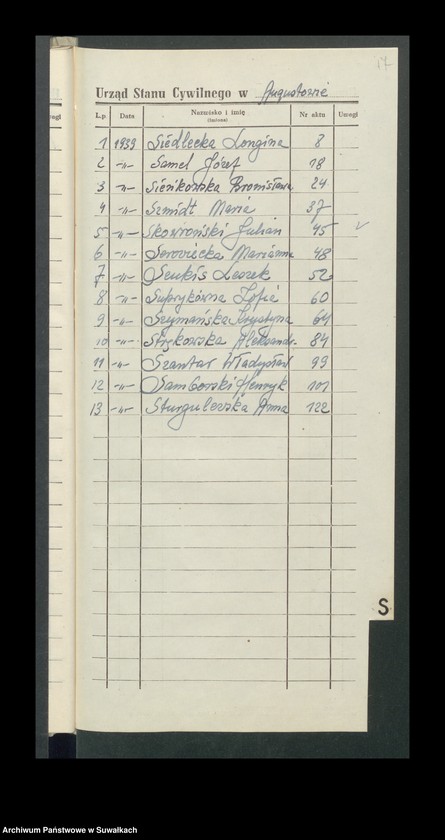 17
Urząd Stanu Cywilnego w Augustowie
L.p. Data Nazwisko i imię (imiona) Nr aktu Uwagi
1 1939 Siedlecka Longina 8
2 -"- Samel Józef 18
3 -"- Sieńkowska Bronisława 24
4 -"- Szmidt Maria 37
5 -"- Skowroński Julian 45 ✓
6 -"- Marianna 48
7 -"- Leszek 52
8 -"- Suprykówna Zofia 60
9 -"- Szymańska Krystyna 64
10 -"- Strykowska Aleksandr. 84
11 -"- Szantar Władysław 99
12 -"- Samborski Henryk 101
13 -"- Sturgulewska Anna 122
S
Archiwum Państwowe w Suwałkach